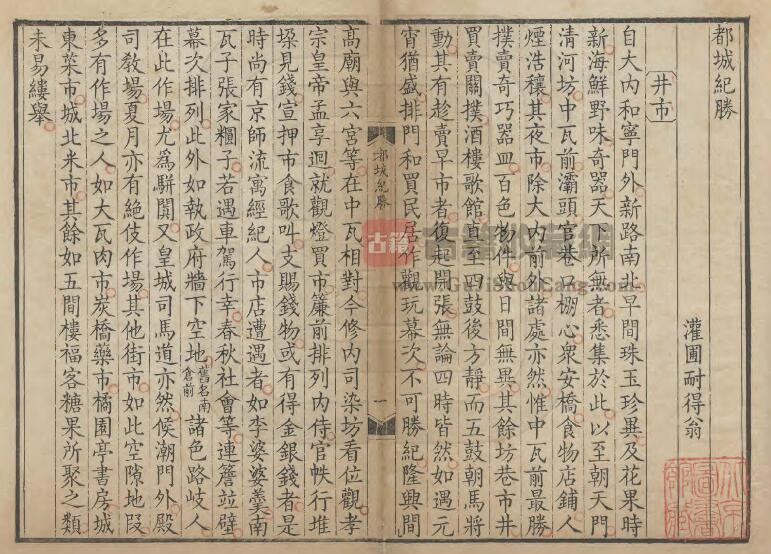 都城紀勝
灌圃耐得翁
井市
自大內和寧門外新路南北早間珠玉珍異及花果時
新海鮮野味奇器天下所無者悉集於此以至朝天門
清河坊中瓦前灞頭官巷口棚心衆安橋食物店鋪人
煙浩穰其夜市除大內前外諸處亦然惟中瓦前最勝
撲賣奇巧器皿百色物件與日間無異其餘坊巷市井
買賣關撲酒樓歌館直至四鼓後方靜而五鼓朝馬將
動其有趂賣早市者復起開張無論四時皆然如遇元
宵猶盛排門和買民居作觀玩幕次不可勝紀隆興間
都城紀勝
一
高廟與六宮等在中瓦相對今修內司染坊看位觀孝
宗皇帝孟享迴就觀燈買市簾前排列內侍官帙行堆
垜見錢宣押市食歌叫支賜錢物或有得金銀錢者是
時尚有京師流寓經紀人市店遭遇者如李婆婆羹南
瓦子張家糰子若遇車駕行幸春秋社會等連簷竝壁
幕次排列此外如執政府牆下空地舊名南倉前諸色路岐人
在此作場尤爲駢闐又皇城司馬道亦然候潮門外殿
司敎場夏月亦有絕伎作場其他街市如此空隙地段
多有作場之人如大瓦肉市炭橋藥市橘園亭書房城
東菜市城北米市其餘如五間樓福客糖果所聚之類
未易縷舉
古籍
www.GuJiShuCang.com